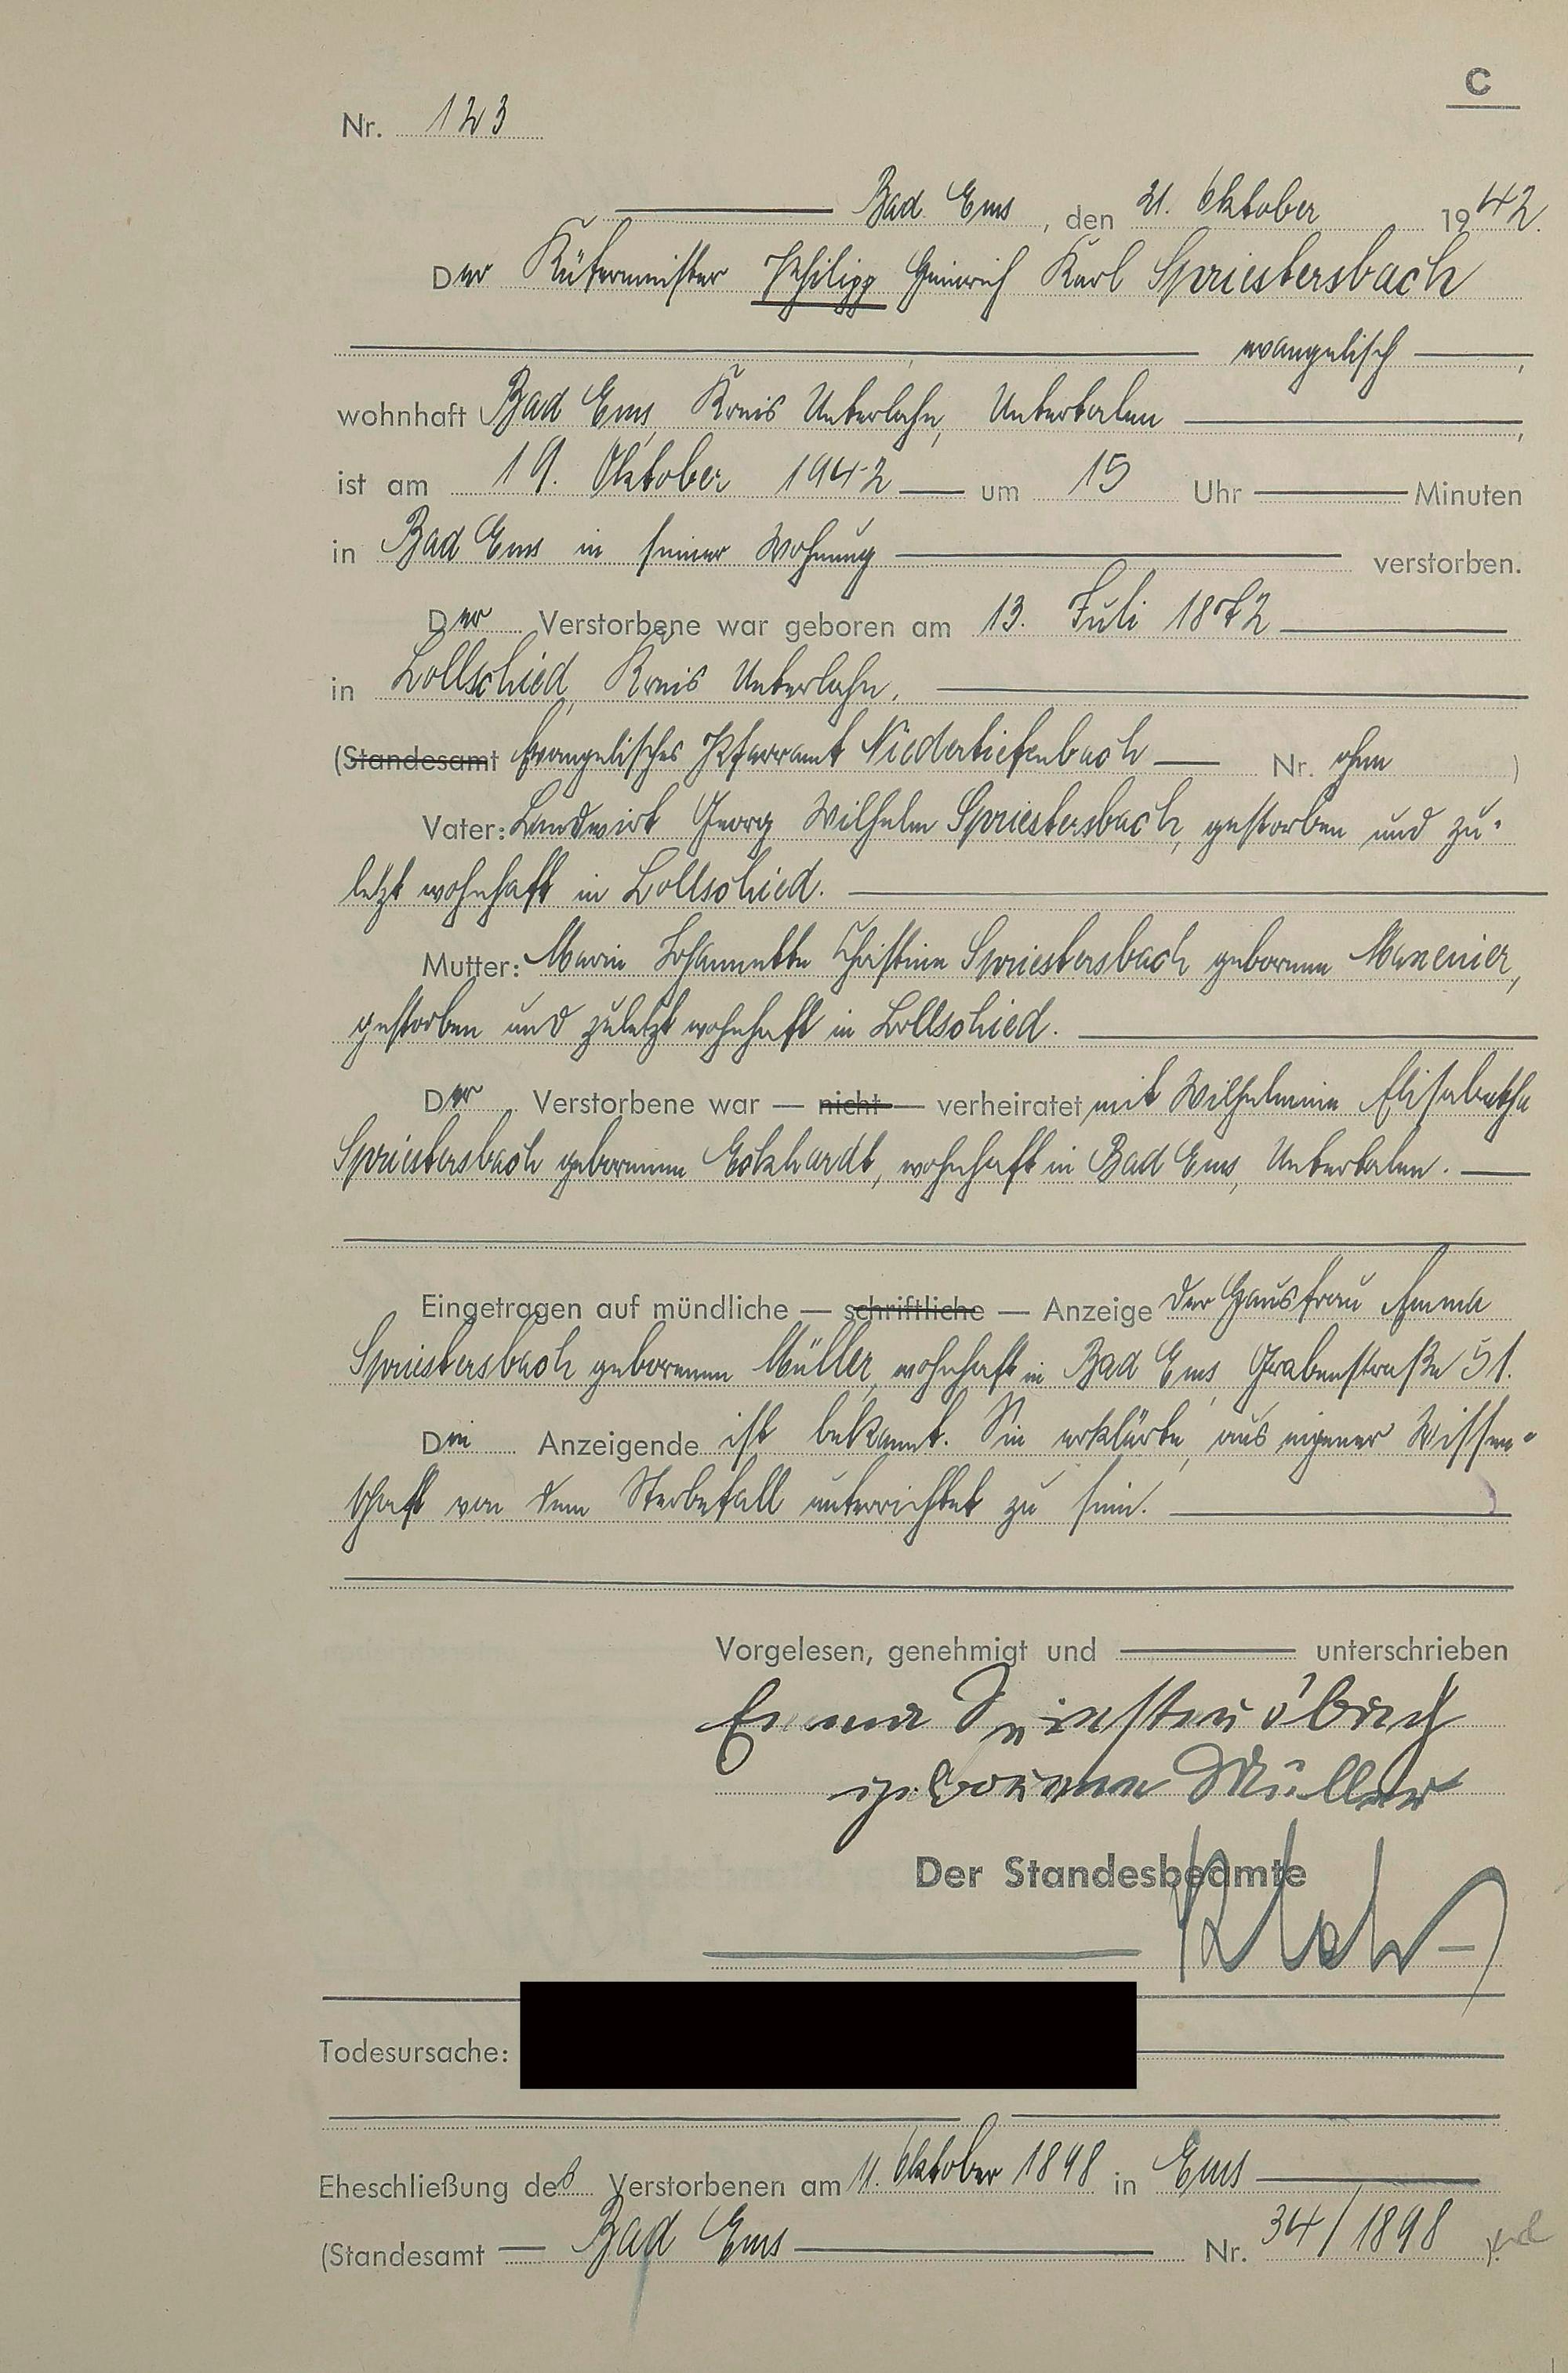 C
Nr. 123
Bad Ems, den 21. Oktober 1942.
Der Küfermeister Philipp Heinrich Karl Spriestersbach
evangelisch,
wohnhaft Bad Ems, Kreis Unterlahn, Untertalen,
ist am 19. Oktober 1942 um 15 Uhr Minuten
in Bad Ems in seiner Wohnung verstorben.
Der Verstorbene war geboren am 13. Juli 1872
in Lollschied, Kreis Unterlahn.
(Standesamt Evangelisches Pfarramt Niedertiefenbach Nr. ohne )
Vater: Landwirt Georg Wilhelm Spriestersbach, gestorben und zu-
letzt wohnhaft in Lollschied.
Mutter: Marie Johannette Christine Spriestersbach geborene Maxeiner,
gestorben und zuletzt wohnhaft in Lollschied.
Der Verstorbene war — nicht — verheiratet mit Wilhelmine Elisabetha
Spriestersbach geborenen Eckhardt, wohnhaft in Bad Ems, Untertalen.
Eingetragen auf mündliche — schriftliche — Anzeige der Hausfrau Emma
Spriestersbach geborenen Müller, wohnhaft in Bad Ems, Grabenstraße 51.
Die Anzeigende ist bekannt. Sie erklärte, aus eigener Wissen-
schaft von dem Sterbefall unterrichtet zu sein.
Vorgelesen, genehmigt und unterschrieben
Emma Spriestersbach
geborene Müller
Der Standesbeamte
Todesursache:
Eheschließung des Verstorbenen am 11. Oktober 1898 in Ems
(Standesamt — Bad Ems Nr. 34/1898 )